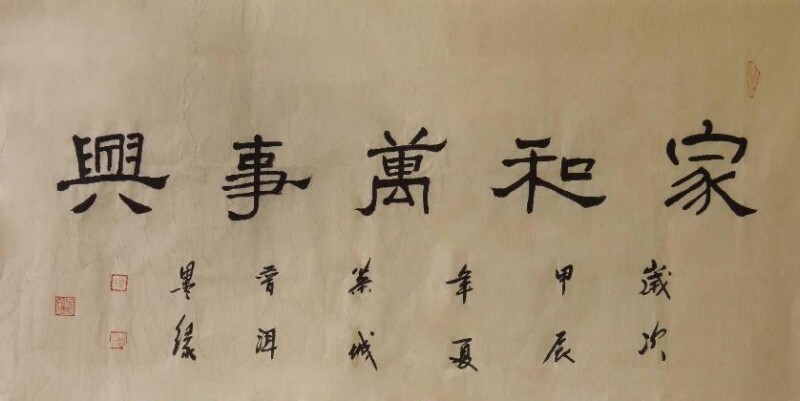 家和萬事興
歲次甲辰年夏茶城普洱墨緣